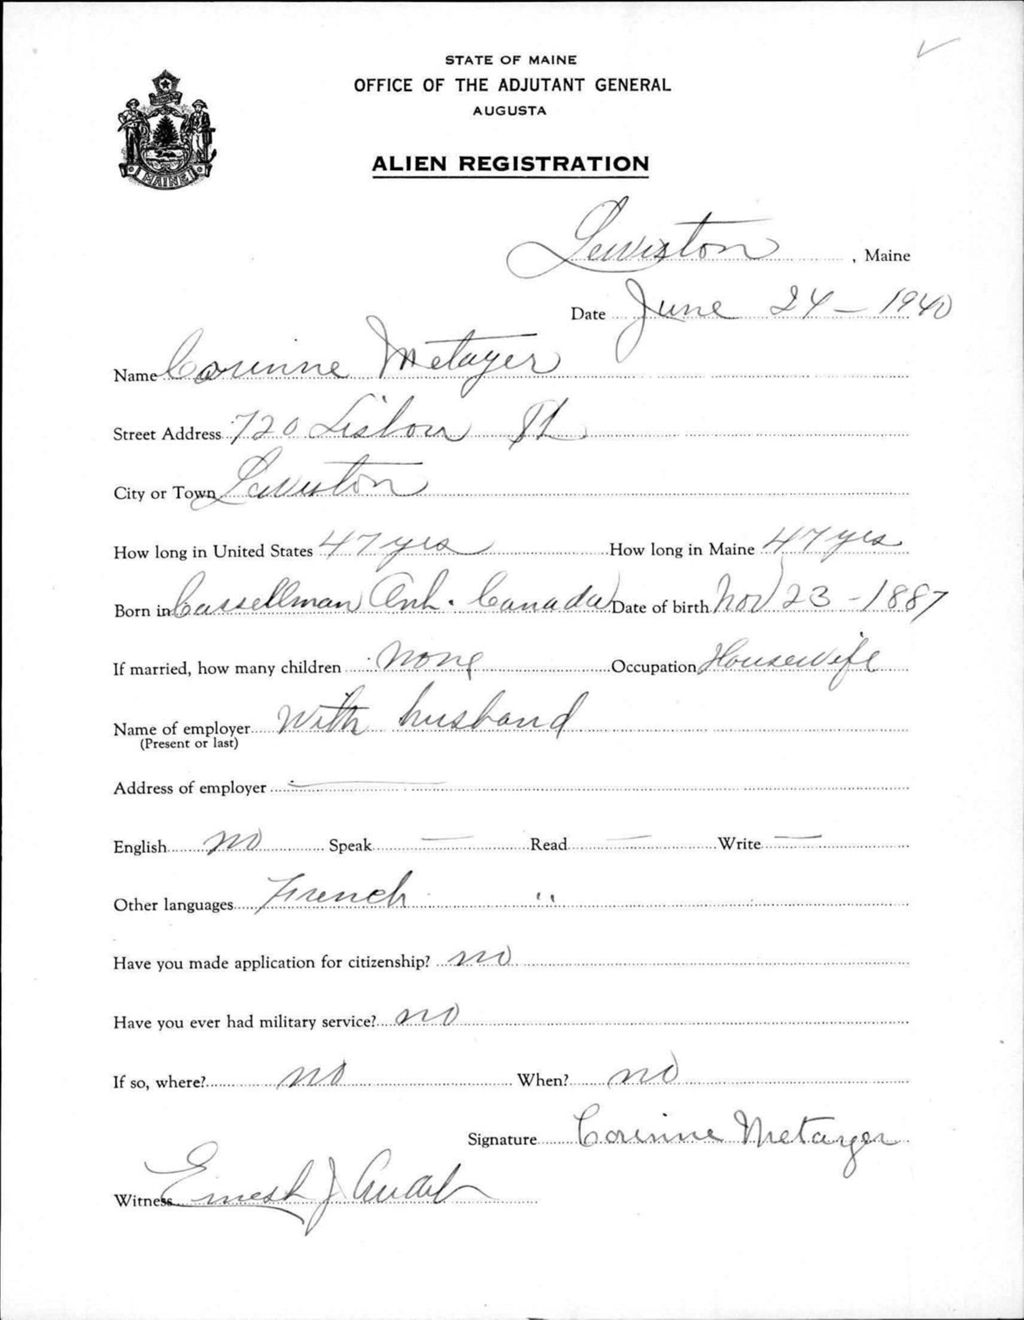 STATE OF MAINE
OFFICE OF THE ADJUTANT GENERAL
AUGUSTA
ALIEN REGISTRATION
MAINE
Lewiston, Maine
Date June 24 - 1940
Name Corinne Metayer
Street Address 720 Lisbon St
City or Town Lewiston
How long in United States 47 yrs How long in Maine 47 yrs
Born in Cassellman Ont. Canada Date of birth Nov 23 - 1887
If married, how many children none Occupation Housewife
Name of employer with husband
(Present or last)
Address of employer —
English no Speak — Read — Write —
Other languages French "
Have you made application for citizenship? no
Have you ever had military service? no
If so, where? no When? no
Signature Corinne Metayer
Witness Ernest J